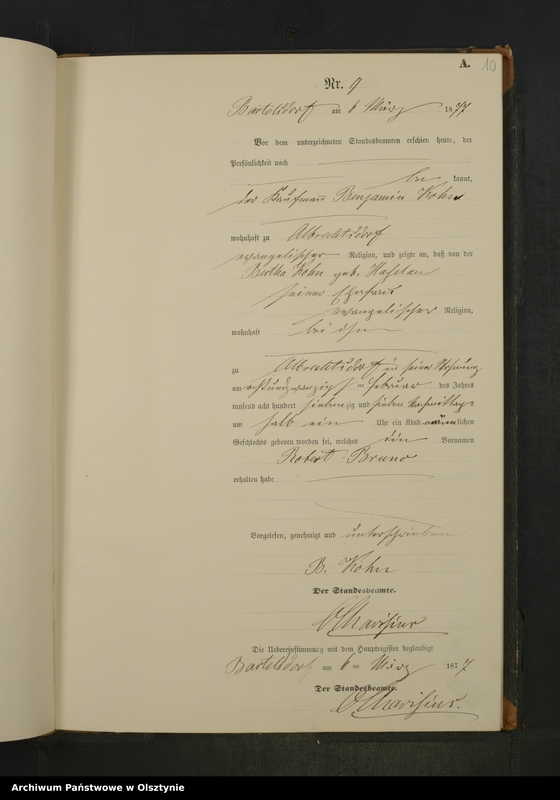 A. 10
Nr. 9
Bartelsdorf am 6 März 1877
Vor dem unterzeichneten Standesbeamten erschien heute, der
Persönlichkeit nach
be kannt,
der Kaufmann Benjamin Kohn
wohnhaft zu Albrechtsdorf
evangelischer Religion, und zeigte an, daß von der
Bertha Kohn geb.
seiner Ehefrau
evangelischer Religion,
wohnhaft bei ihm
zu Albrechtsdorf in seiner Wohnung
am achtundzwanzigsten Februar des Jahres
tausend acht hundert siebenzig und sieben Nachmittags
um halb ein Uhr ein Kind männlichen
Geschlechts geboren worden sei, welches die Vornamen
Robert Bruno
erhalten habe
Vorgelesen, genehmigt und unterschrieben
B. Kohn
Der Standesbeamte.
Die Uebereinstimmung mit dem Hauptregister beglaubigt
Bartelsdorf am 6 ten März 1877
Der Standesbeamte.
Archiwum Państwowe w Olsztynie